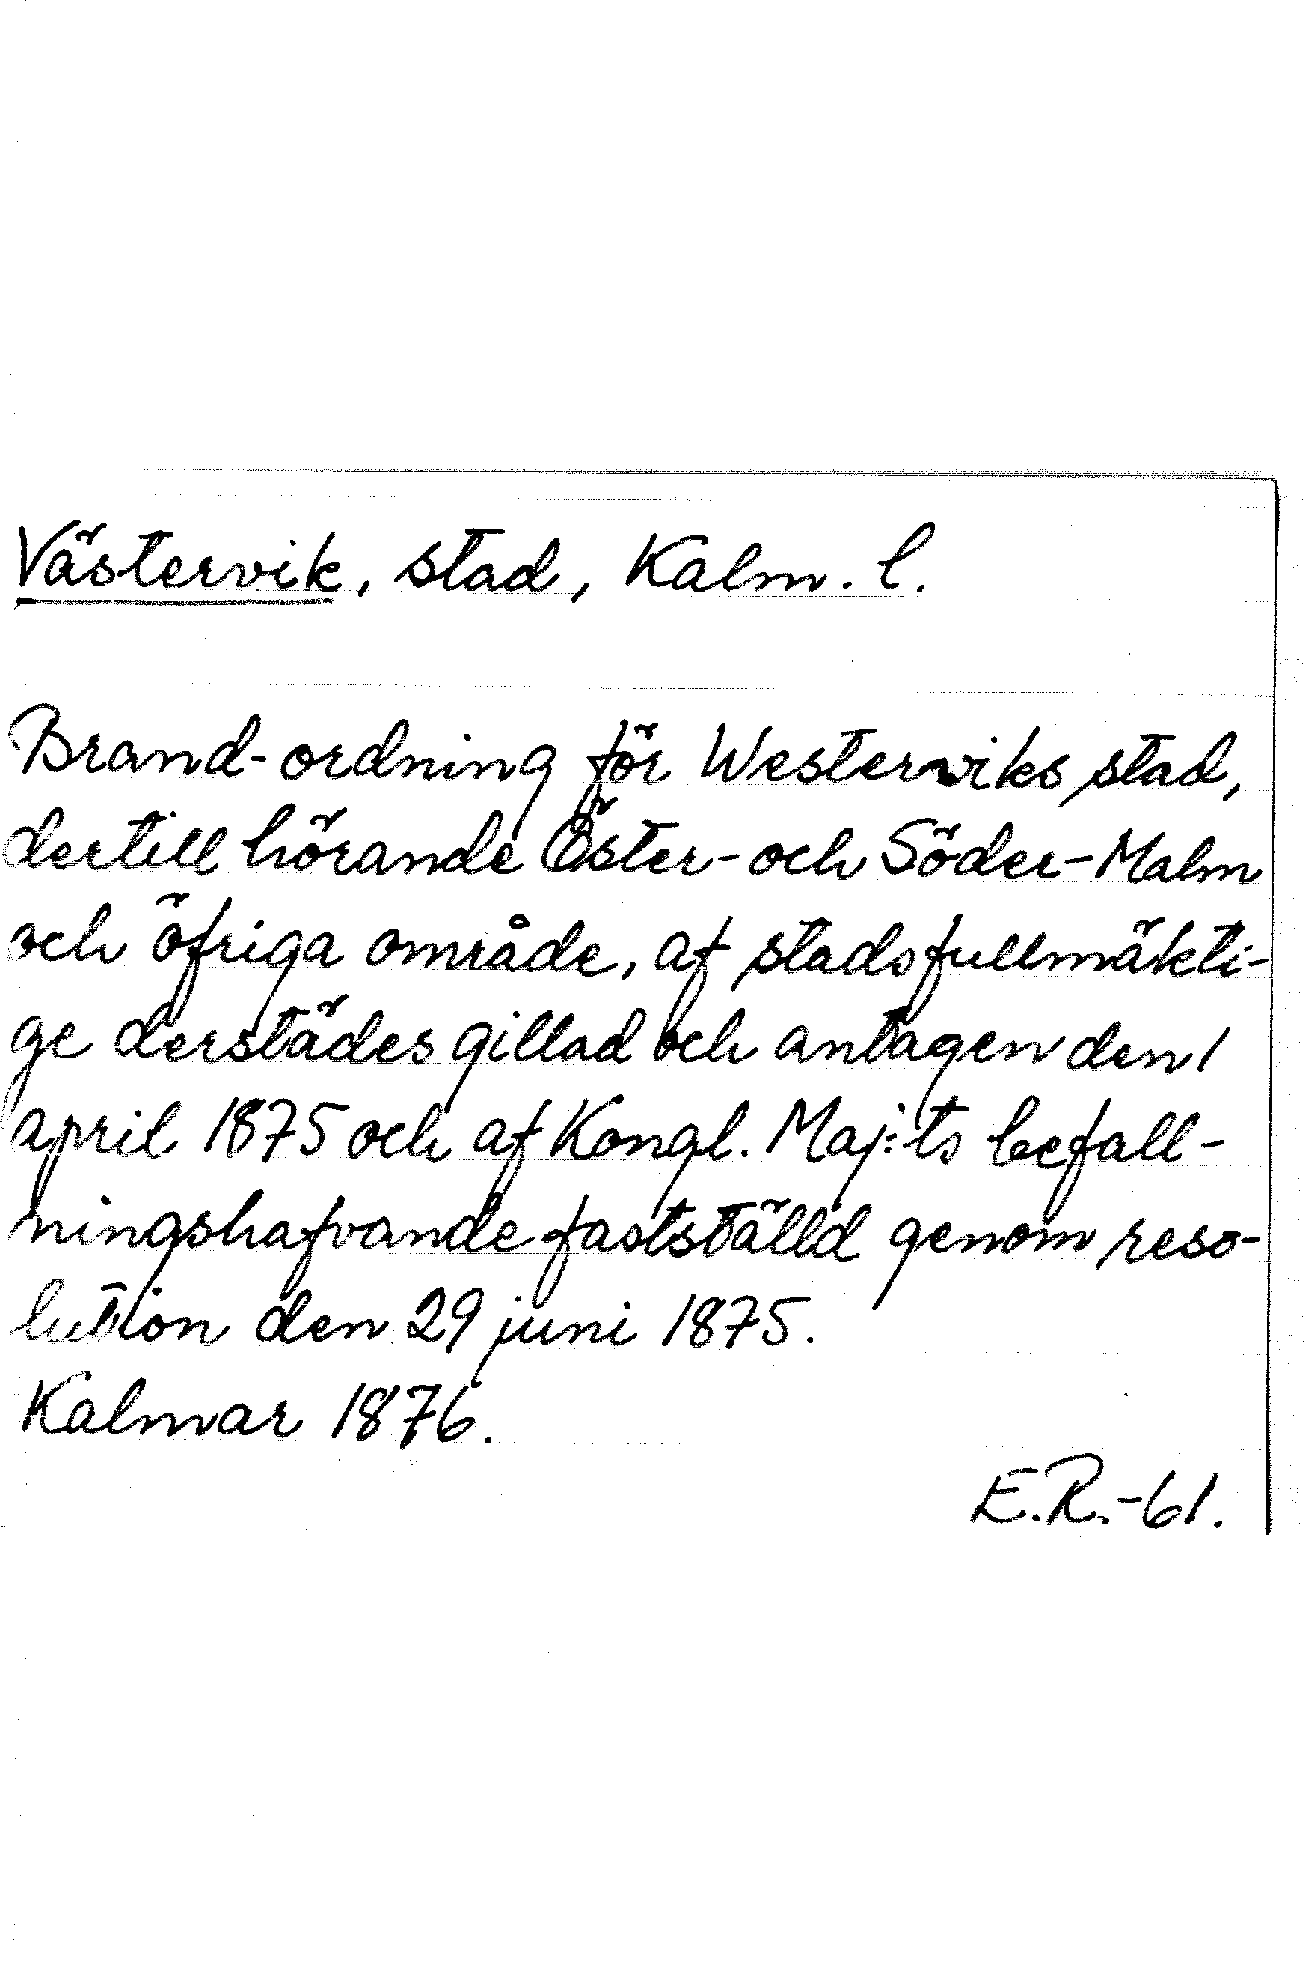 Västervik, stad, Kalm. l.
Brand-ordning för Westerviks stad,
dertill hörande Öster- och Söder-Malm
och öfriga område, af stadsfullmäkti-
ge derstädes gillad och antagen den 1
april 1875 och af Kongl. Maj:ts befall-
ningshafvande fastställd genom reso-
lution den 29 juni 1875.
Kalmar 1876.
E.R.-61.